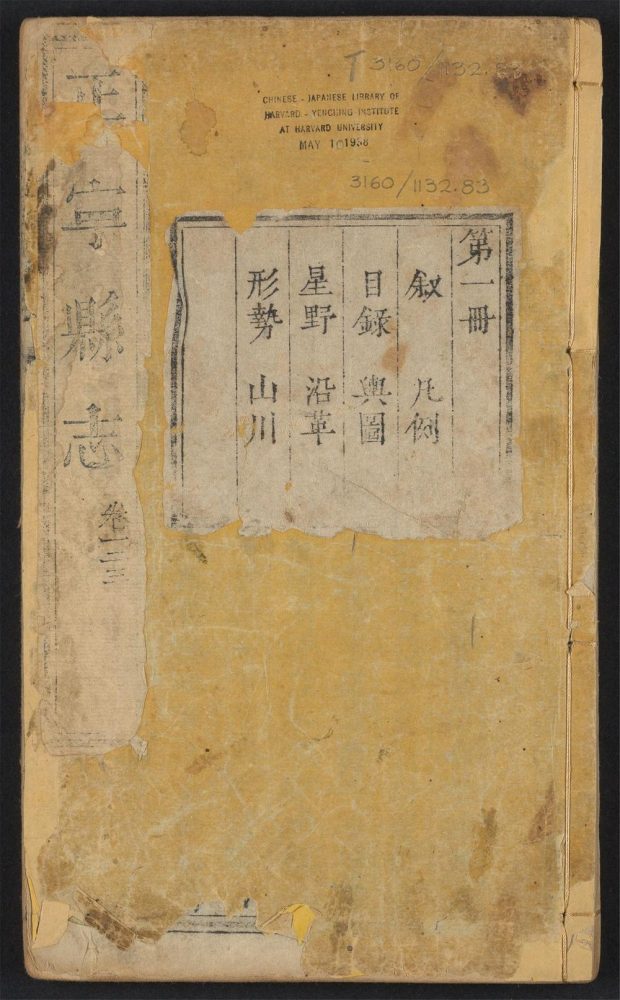 T 3160/1132.83
CHINESE - JAPANESE LIBRARY OF
HARVARD - YENCHING INSTITUTE
AT HARVARD UNIVERSITY
MAY 10 1938
3160/1132.83
第一冊
叙 凡例
目錄 輿圖
星野 沿革
形勢 山川
正宁縣志 卷一二三